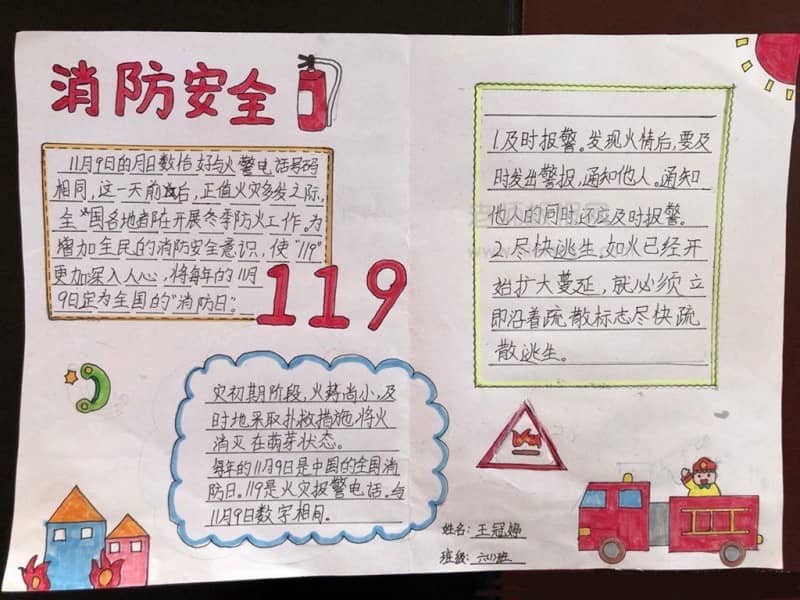 消防安全
11月9日的月日数恰好与火警电话号码
相同,这一天前后,正值火灾多发之际,
全国各地都在开展冬季防火工作。为
增加全民的消防安全意识,使"119"
更加深入人心,将每年的11月
9日定为全国的"消防日"。
119
灾初期阶段,火势尚小,及
时地采取扑救措施,将火
消灭在萌芽状态。
每年的11月9日是中国的全国消
防日。119是火灾报警电话。与
11月9日数字相同。
1.及时报警。发现火情后,要及
时发出警报,通知他人。通知
他人的同时,还应及时报警。
2.尽快逃生。如火已经开
始扩大蔓延,就必须立
即沿着疏散标志尽快疏
散逃生。
姓名:王冠婷
班级: